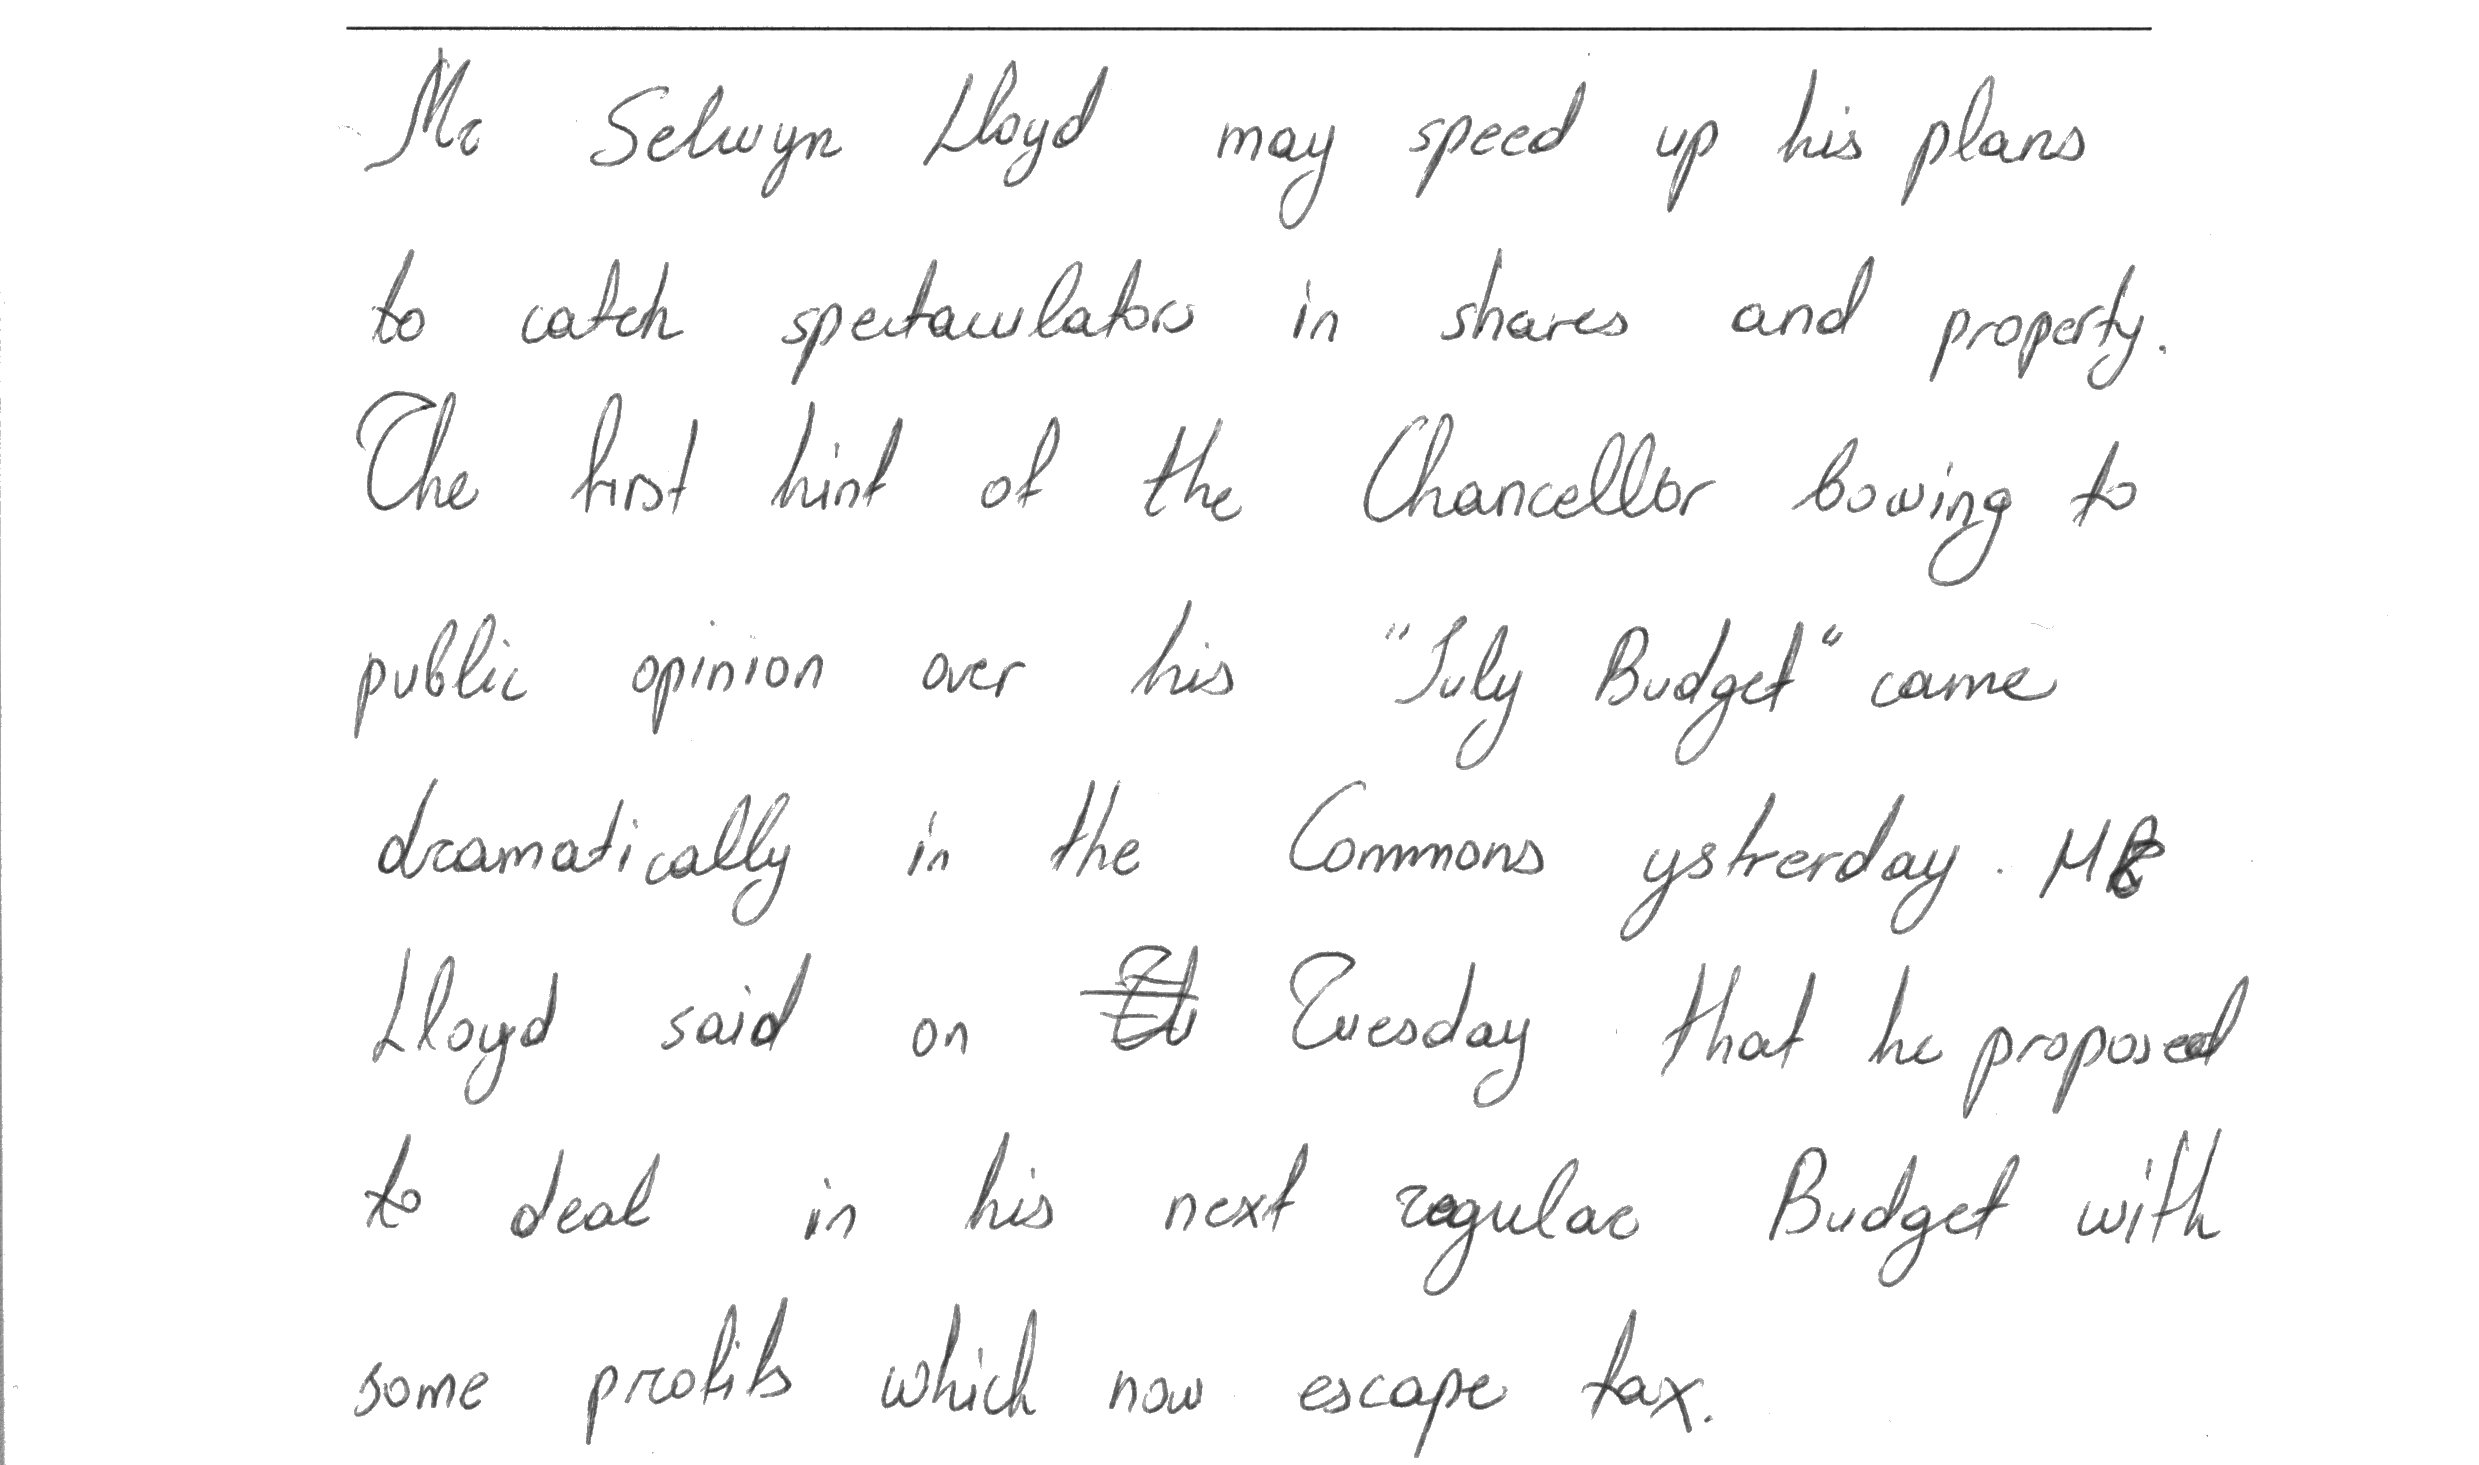 Mr Selwyn Lloyd may speed up his plans
to catch spectaculators in shares and property.
The first hint of the Chancellor bowing to
public opinion over his "July Budget" came
dramatically in the Commons ysterday. Mr
Lloyd said on Tuesday that he proposed
to deal in his next regular Budget with
some profits which now escape tax.